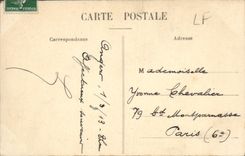 CARTE POSTALE
LF
Correspondance
Adresse
Angers 1/3/13
Affectueux souvenir
Mademoiselle
Yvonne Chevalier
79 Bd Montparnasse
Paris (6e)